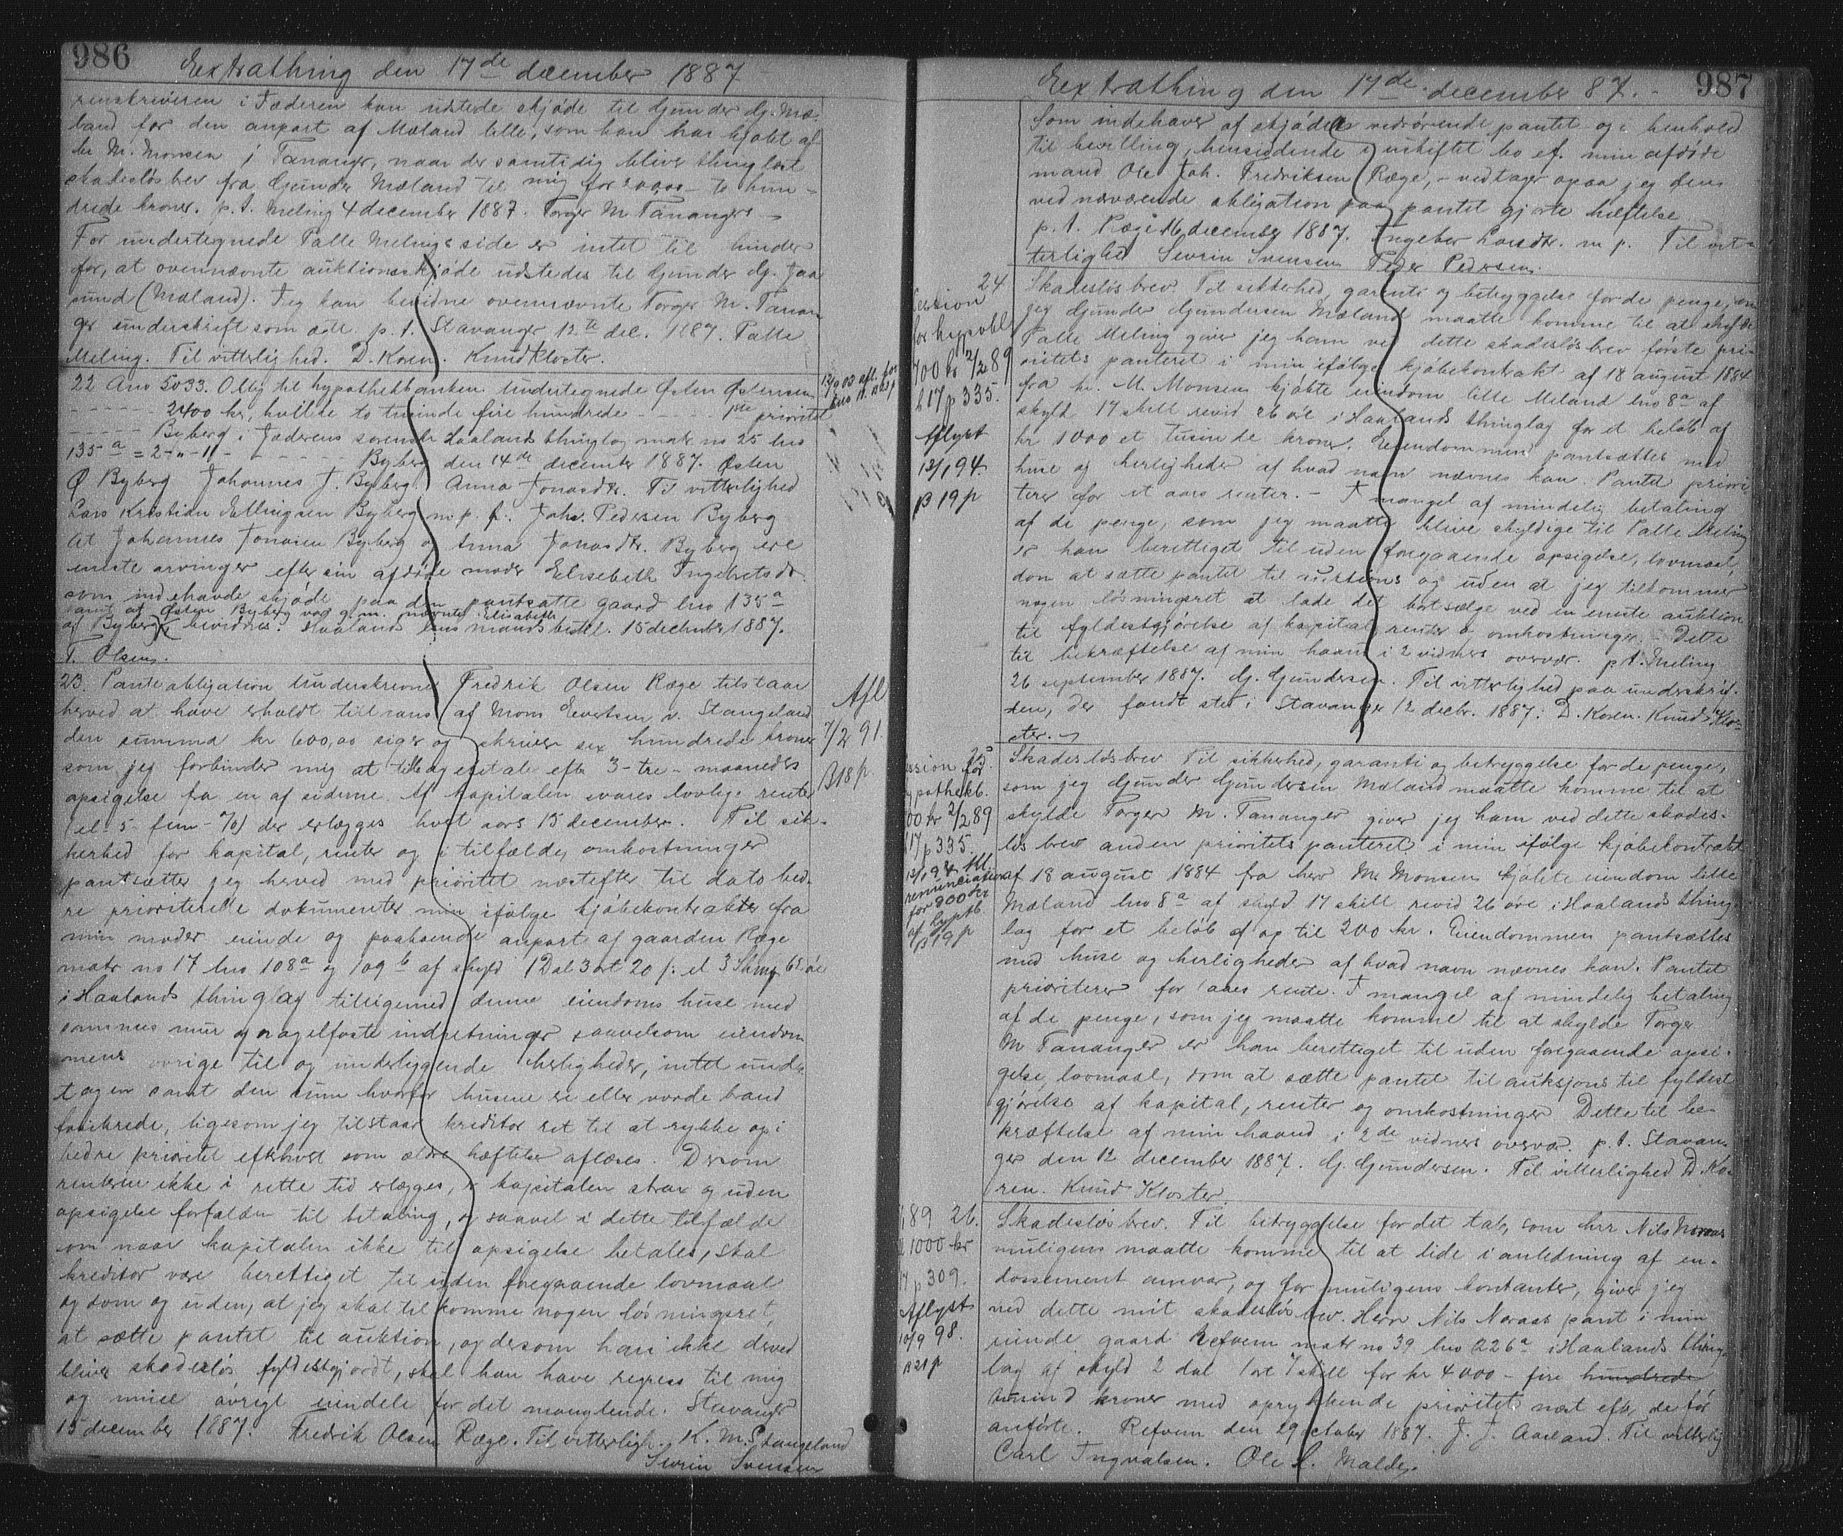 986
Extrathing den 17de december 1887
renskriveren i Jæderen kan udstede skjøde til Gunder Gj. Mæ-
land for den anpart af Mæland lille, som han har kjøbt af
hr M. Monsen i Tananger, naar der samtidig bliver thinglæst
skadesløsbrev fra Gunder Mæland til mig for 200,00 - to hun-
drede kroner. p.t. Meling 4 december 1887. Torger M. Tananger
For undertegnede Palle Melings side er intet til hinder
for, at ovennævnte auktionsskjøde udstedes til Gunder Gj. Jaa
sund (Mæland). Jeg kan bevidne ovennævnte Torger M. Tanan
ger underskrift som ægte. p.t. Stavanger 12te dec. 1887. Palle
Meling. Til vitterlighed. D. Koren. Knud Kloster.
22 Ano 5033. Oblig til hypothekbanken Undertegnede Østen Østensen
- - - - - 2400 kr, hvilke to tusinde fire hundrede - - - - 1ste prioritet
- - - - - Byberg i Jæderens sorenskr Haalands thinglag matr no 25 lno
135a = 2 - " - 11 - - - - - - Byberg den 14de december 1887. Østen
Ø Byberg Johannes J. Byberg Anna Jonasdtr. Til vitterlighed
Lars Kristian Ellingsen Byberg m.p.f. Johs. Pedersen Byberg
At Johannes Jonasen Byberg og Anna Jonasdtr. Byberg ere
eneste arvinger efter sin afdøde moder Elisebeth Ingebretsdtr.
som indehavde skjøde paa den pantsatte gaard lno 135a
samt at Østen Byberg var g.m. nævnte Elisabeth
af Byberg bevidnes. Haaland lensmandsbestil. 15 december 1887.
T. Olsen.
23. Panteobligation Underskrevne Fredrik Olsen Ræge tilstaar
herved at have erholdt tillaans af Mons Evertsen v. Stangeland
den summa kr 600,00 siger og skriver sex hundrede kroner
som jeg forbinder mig at tilbagebetale efter 3 - tre - maaneders
opsigelse fra en af siderne. Af kapitalen svares lovlige renter
(el. 5 - fem - %) der erlægges hvert aars 15 december. Til sik-
kerhed for kapital, renter og i tilfælde, omkostninger
pantsætter jeg herved med prioritet næstefter til dato bed-
re prioriterede dokumenter min ifølge kjøbekontrakter fra
min moder eiende og paaboende anpart af gaarden Ræge
matr no 17 lno 108a og 109b af skyld 1 Dal 3 ort 20 s: el 3 Skmrk 65 øre
i Haalands thinglag tilligemed denne eiendoms huse med
sammes mur og nagelfaste indretninger saavelsom eiendom
mens øvrige til og underliggende herligheder, intet unda-
tagen samt den sum hvorfor husene er eller vorde brand
forsikrede, ligesom jeg tilstaar kreditor ret til at rykke op i
bedre prioritet efterhvert som ældre hæftelser aflæses. Dersom
renterne ikke i rette tid erlægges, er kapitalen strax og uden
opsigelse forfalden til betaling, og saavel i dette tilfælde
som naar kapitalen ikke til opsigelse betales, skal
kreditor være berettiget til uden foregaaende lovmaal
og dom og uden, at jeg skal tilkomme nogen løsningsret,
at sætte pantet til auktion, og dersom han ikke derved
bliver skadesløs fyldestgjordt, skal han have regress til mig
og mine øvrigt eiendele for det manglende. Stavanger
15 december 1887. Fredrik Olsen Ræge. Til vitterligh. K. M. Stangeland
Sivrin Svensen
12/9 03 afl. for
lno
Afl
7/2 91.
B 18 p.
987
Extrathing den 17de december 87.
Som indehaver af skjøde vedrørende pantet og i henhold
til bevilling, hensiddende i uskiftet bo ef. min afdøde
mand Ole Joh. Fredriksen Ræge, - vedtager ogsaa jeg den
ved nærværende obligation paa pantet gjorte hæftelse
p.t. Ræge 16 december 1887. Ingeber Larsdtr. m p. Til vit-
terlighed Sivrin Svensen Peder Pedersen.
24 Skadesløsbrev Til sikkerhed, garanti og betryggelse for de penge, som
jeg Gjunder Gjundersen Mæland maatte komme til at skylde
Palle Meling giver jeg ham ved dette skadesløsbrev første pri-
oritets panteret i min ifølge kjøbekontrakt af 18 august 1884
fra hr. M. Monsen kjøbte eiendom lille Meland lno 8a af
skyld 17 skill revid 26 øre i Haalands thinglag for et beløb af
kr 1000 et tusinde kroner. Eiendommen pantsættes med
huse og herligheder af hvad navn nævnes kan. Pantet priori
terer for et aars renter. - I mangel af mindelig betaling
af de penge, som jeg maatte blive skyldige til Palle Meling
er han berettiget til uden foregaaende opsigelse, lovmaal,
dom at sætte pantet til auktions og uden at jeg tilkommer
nogen løsningsret at lade det bortsælge ved en eneste auktion
til fyldestgjørelse af kapital, renter & omkostninger. - Dette
til bekræftelse af min haand i 2 vidners overvær. p.t. Meling
26 september 1887. Gj. Gjundersen. Til vitterlighed paa underskrif-
ten, der fandt sted i Stavanger 12 decbr. 1887: D. Koren. Knud Klo-
ster.
25 Skadesløsbrev Til sikkerhed, garanti og betryggelse for de penge,
som jeg Gjunder Gjundersen Mæland maatte komme til at
skylde Torger M. Tananger giver jeg ham ved dette skades-
løsbrev anden prioritets panteret i min ifølge kjøbekontrakt
af 18 august 1884 fra herr M. Monsen kjøbte eiendom lille
Mæland lno 8a af skyld 17 skill revid 26 øre i Haalands thing-
lag for et beløb af op til 200 kr. Eiendommen pantsættes
med huse og herligheder af hvad navn nævnes kan. Pantet
prioriterer for 1 aars rente. I mangel af mindelig betaling
af de penge, som jeg maatte komme til at skylde Torger
M Tananger er han berettiget til uden foregaaende opsi-
gelse, lovmaal, dom at sætte pantet til auksjons til fyldest
gjørelse af kapital, renter og omkostninger Dette til be-
kræftelse af min haand i 2de vidners overvær. p.t. Stavan-
ger den 12 december 1887. Gj. Gjundersen. Til vitterlighed D. Ko-
ren. Knud Kloster.
26. Skadesløsbrev. Til betryggelse for det tab, som herr Nils Noraas
muligens maatte komme til at lide i anledning af en-
dossement ansvar, og for muligens kontanter, giver jeg
ved dette mit skadesløsbrev Herr Nils Noraas pant i min
eiende gaard Refvem matr no 39 lno 226a i Haalands thing-
lag af skyld 2 dal 1 ort 7 skill for kr 4000 - fire hundrede
tusind kroner med oprykkende prioritet næst efter de før
anførte. Refvem den 29 october 1887. J. J. Aarland. Til vitterlig
Carl Ingvalsen. Ole L. Malde.
Cession
for hypobl
700 kr 2/2 89
b 17 p 335.
Aflyst
12/1 94.
B 19 p
ession for
ypothekb.
00 kr 2/2 89
17 p 335.
12/1 94 Afl.
renunciation
for 900 kr
af hyptb
B 19 p
89
1000 kr
17 p 309.
Aflyst
10/9 98.
B 21 p